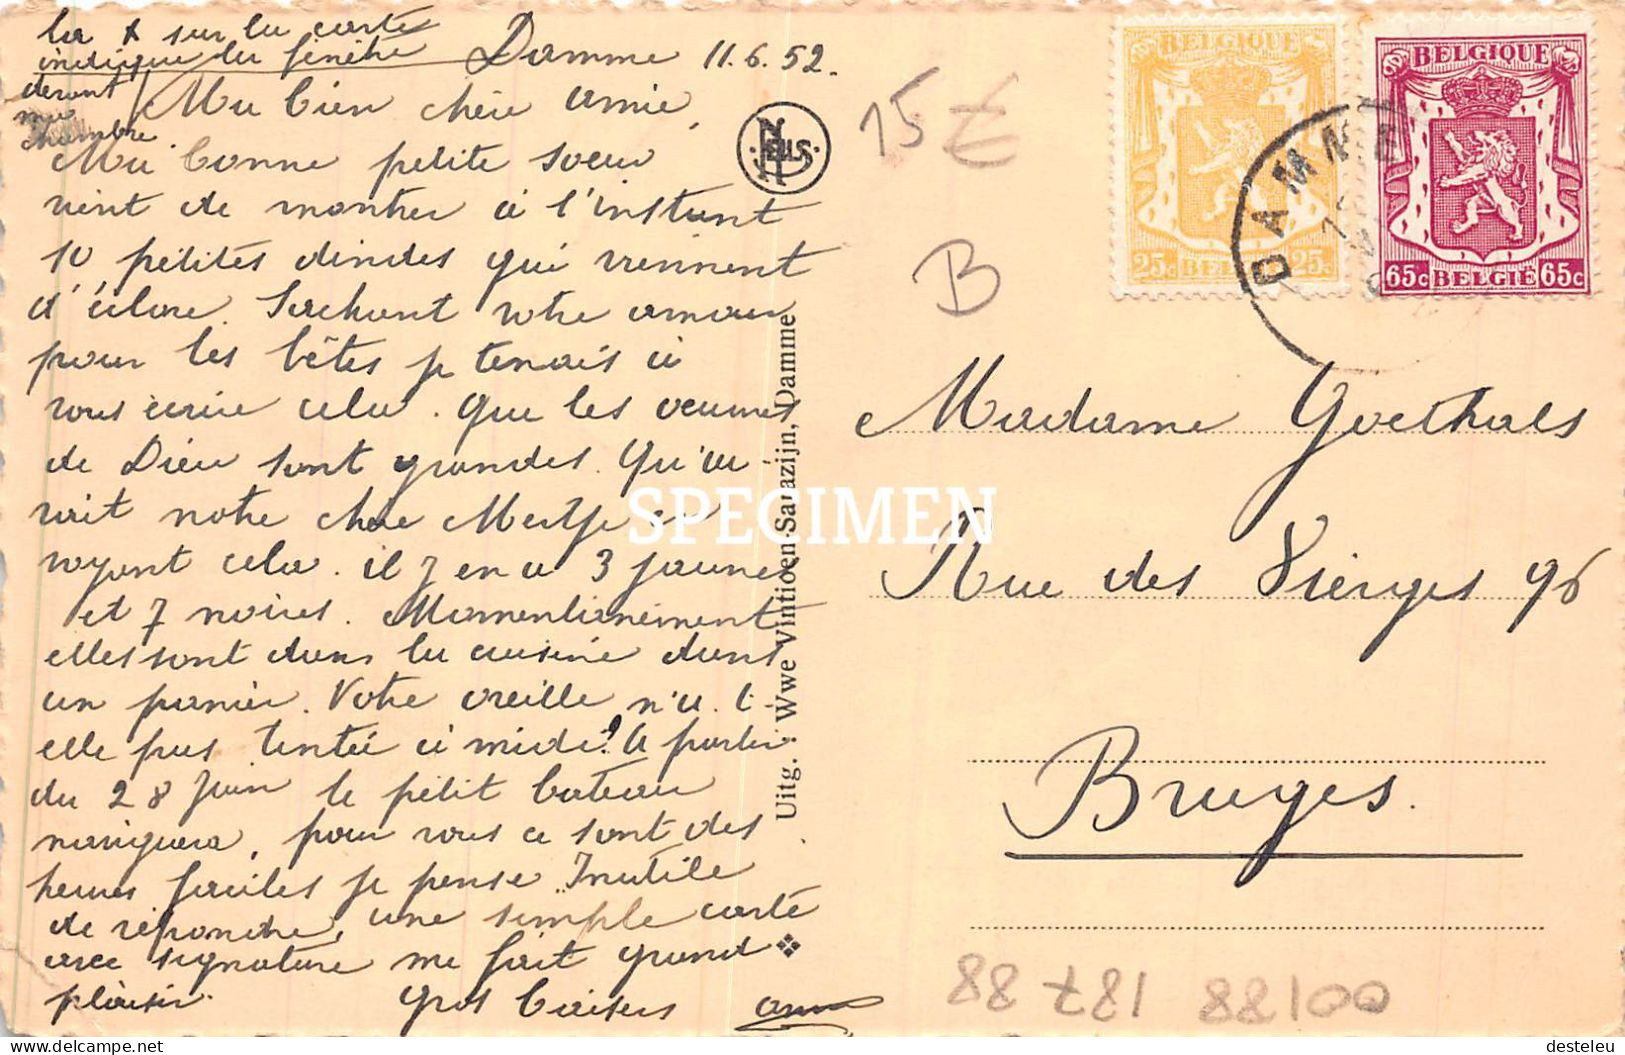 La x sur la carte
indique la fenêtre
devant
ma
chambre
Damme 11.6.52.
Ma bien chère amie,
Ma bonne petite soeur
vient de montrer à l'instant
10 petites dindes qui viennent
d'éclore. Sachant votre amour
pour les bêtes je tenais à
vous écrire cela. Que les oeuvres
de Dieu sont grandes. Qu'au-
rait notre chère en
voyant cela. il y en a 3 jaunes
et 7 noires. Momentanément
elles sont dans la cuisine dans
un panier. Votre oreille n'a t-
elle pas tintée à midi? A partir
du 28 Juin le petit bateau
naviguera, pour vous ce sont des
heures faciles je pense. Inutile
de répondre, une simple carte
avec signature me fait grand
plaisir. Gros baisers
NELS
Uitg. : Wwe Vintioen-Sarazijn, Damme
15 €
B
BELGIQUE
25c BELGIE 25c
BELGIQUE
65c BELGIE 65c
DAMME
Madame Goethals
Rue des Vierges 96
Bruges.
SPECIMEN
88 t81 88100
delcampe.net
desteleu